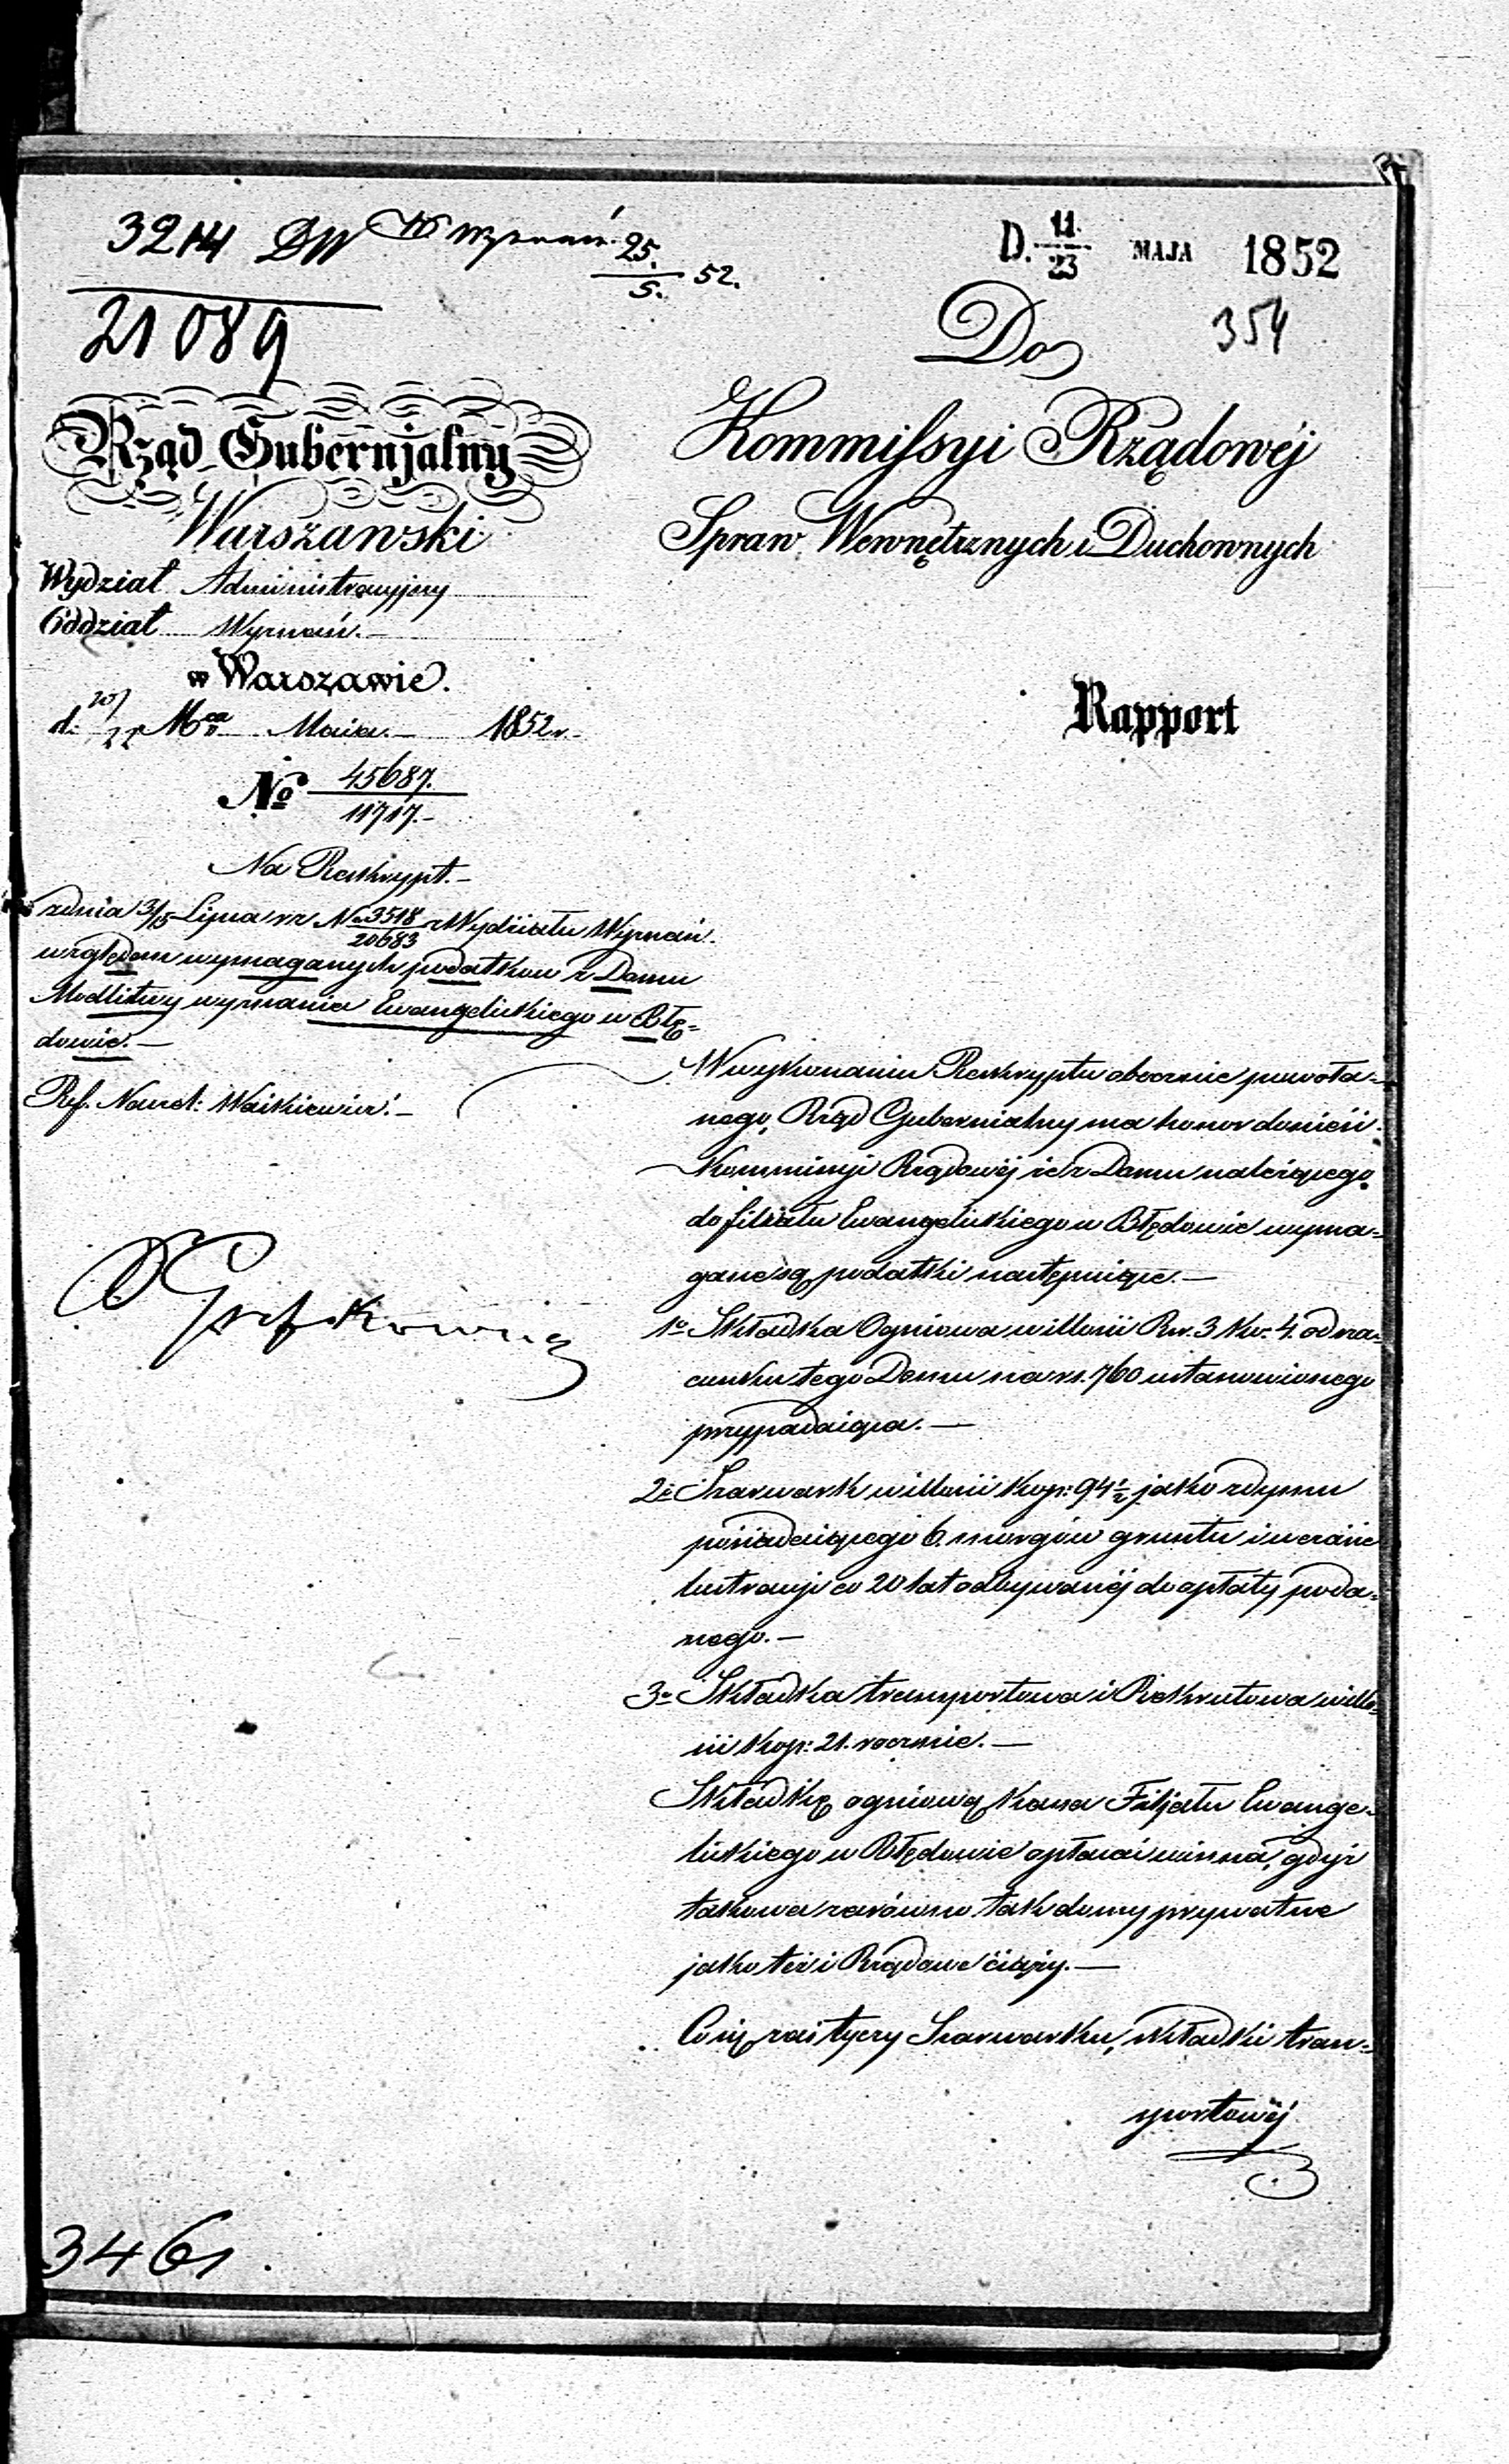 3214 DW W Wyznań 25./5. 52.
21089
D. 11/23 MAJA 1852
354
Rząd Gubernjalny
Warszawski
Wydział Administracyjny
Oddział Wyznań.—
w Warszawie.
d. 10/22 Mca Maia.— 1852 r.
No 45687./11717.—
Na Reskrypt.—
z dnia 3/15 Lipca vr No 3518/20683 z Wydziału Wyznań.
względem wymaganych podatków z Domu
Modlitwy wyznania Ewangelickiego w Błę=
dowie.—
Ref. Naczel: Waśkiewicz.—
Do
Kommissyi Rządowéj
Spraw Wewnętrznych i Duchownych
Rapport
W wykonaniu Reskryptu obocznie powoła=
nego, Rząd Gubernialny ma honor donieść
Kommissyi Rządowéj że z Domu należącego
do filiału Ewangelickiego w Błędowie wyma=
gane są podatki następuiące.—
1o Składka Ogniowa w ilości Rsr. 3 Kw. 4. od sza=
cunku tego Domu na rs. 760 ustanowionego
przypadaiąca.—
2o Szarwark w ilości kop: 94 1/2 jako z dymu
posiadaiącego 6. morgów gruntu i w czasie
lustracyi co 20 lat odbywanéj do opłaty poda=
nego.—
3o Składka transportowa i Rekrutowa w ilo=
ści kop: 21. rocznie.—
Składkę ogniową kassa Filjału Ewange=
lickiego w Błędowie opłacać winna, gdyż
takowa zarówno tak domy prywatne
jako też i Rządowe ciąży.—
Co się zaś tyczy Szarwarku, składki tran=
sportowéj
3461.